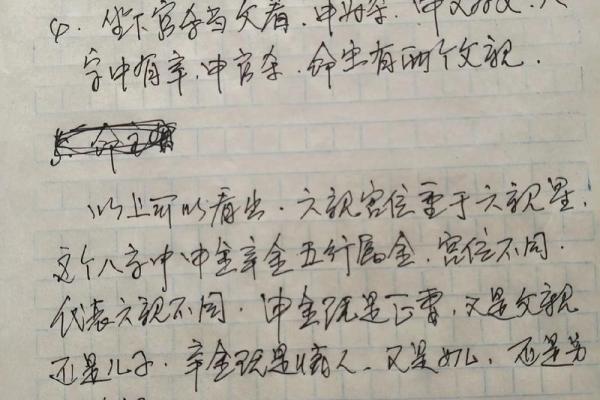 4. 坐下官杀当父看, 申为杀, 申又为父, 八
字中有辛, 申官杀. 命出有两个父亲.
5. 命主
以上可以看出. 六亲宫位重于六亲星.
这个八字中申金辛金五行属金, 宫位不同.
代表六亲不同. 申金既是正妻, 又是父亲
还是儿子. 辛金既是情人. 又是女儿, 还是